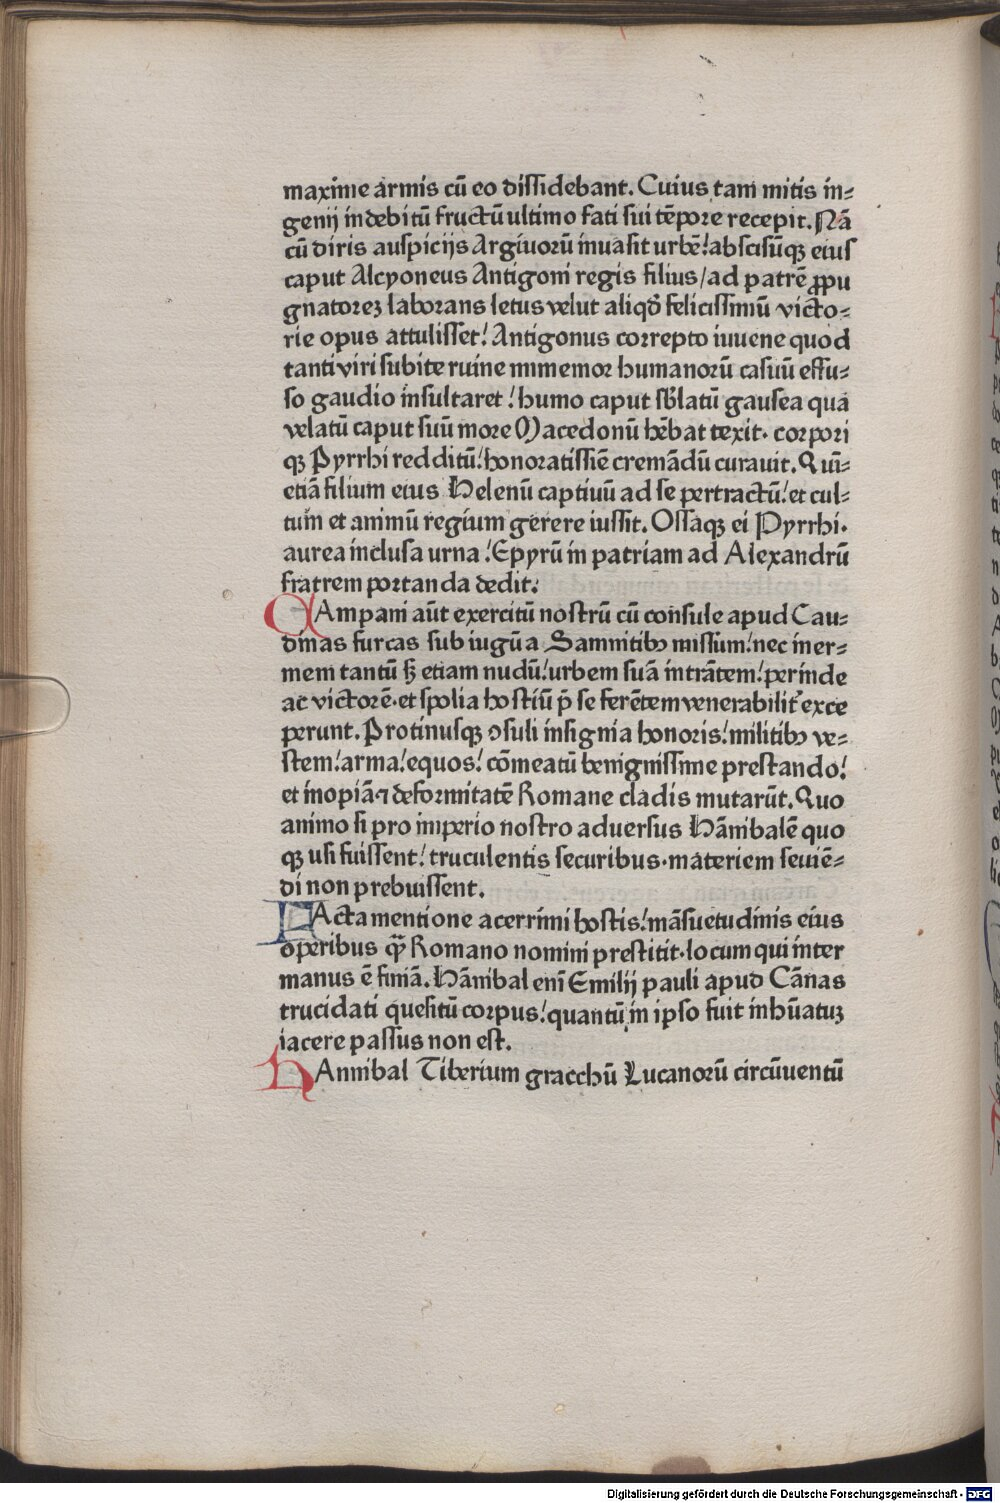 maxime armis cū eo dissidebant. Cuius tam mitis in⸗
genij indebitū fructū ultimo fati sui tēpore recepit. Nā
cū diris auspicijs Argiuorū inuasit urbē! abscisūqꝫ eius
caput Alcyoneus Antigoni regis filius/ ad patrē ꝓpu
gnatoreꝫ laborans letus velut aliqd̄ felicissimū victo⸗
rie opus attulisset! Antigonus correpto iuuene quod
tanti viri subite ruine immemor humanorū casuū effu⸗
so gaudio insultaret! humo caput sb̄latū gausea qua
velatū caput suū more Macedonū hēbat texit· corpori
qꝫ Pyrrhi redditū! honoratissīe cremādū curauit. Quī⸗
etiā filium eius Helenū captiuū ad se pertractū! et cul⸗
tum et animū regium gerere iussit. Ossaqꝫ ei Pyrrhi·
aurea inclusa urna! Epyrū in patriam ad Alexandrū
fratrem portanda dedit:
CAmpani aūt exercitū nostrū cū consule apud Cau⸗
dinas furcas sub iugū a Samnitibꝰ missum! nec iner⸗
mem tantū sꝫ etiam nudū! urbem suā intrātem! perinde
ac victorē· et spolia hostiū p̄ se ferētem venerabilit̓ exce
perunt. Protinusqꝫ ↄsuli insignia honoris! militibꝰ ve⸗
stem! arma! equos! cōmeatū benignissime prestando!
et inopiā ⁊ deformitatē Romane cladis mutarūt. Quo
animo si pro imperio nostro aduersus Hānibalē quo
qꝫ usi fuissent! truculentis securibus· materiem seuiē⸗
di non prebuissent.
FActa mentione acerrimi hostis! māsuetudinis eius
operibus qꝫ̄ Romano nomini prestitit· locum qui inter
manus ē finiā. Hānibal enī Emilij pauli apud Cānas
trucidati quesitū corpus! quantū in ipso fuit inhūatuꝫ
iacere passus non est.
HAnnibal Tiberium gracchū Lucanorū circūuentū
Digitalisierung gefördert durch die Deutsche Forschungsgemeinschaft - DFG